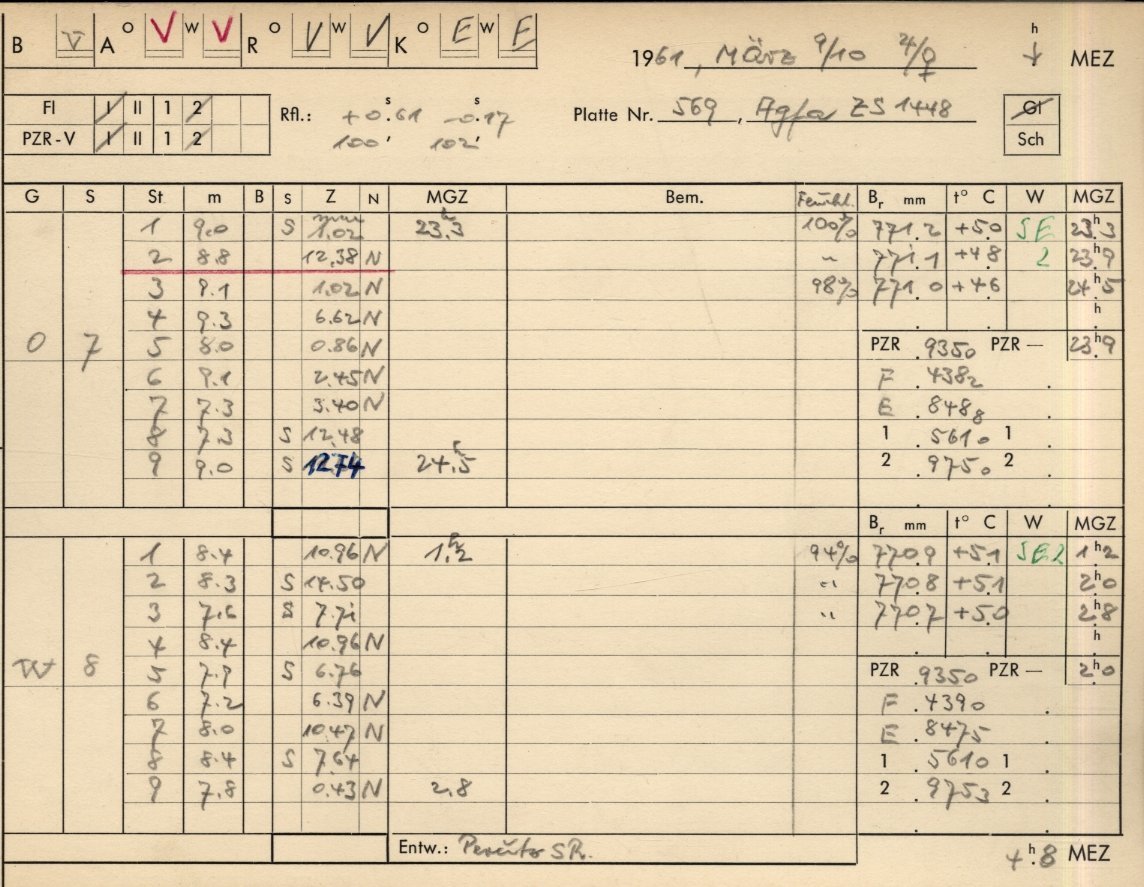 B V A O V W V R O V W V K O E W E
1961, März 9/10 ♃/♀ h ↓ MEZ
Fl I II 1 2 Rfl.: +0.ˢ61 -0.ˢ17 Platte Nr. 569, Agfa ZS 1448 Gl
PZR-V I II 1 2 100' 102' Sch
G S St m B S Z N MGZ Bem. Feucht. Br mm t° C W MGZ
1 9.0 S mm 1.02 23.ʰ3 100% 771.2 +5.0 SE 23.ʰ3
2 8.8 12,38 N " 771.1 +4.8 2 23.ʰ9
3 9.1 1,02 N 98% 771.0 +4.6 24.ʰ5
4 9.3 6.62 N h
O 7 5 8.0 0.86 N PZR .9350 PZR — 23.ʰ9
6 9.1 2.45 N F .4382
7 7.3 3.40 N E .8488
8 7.3 S 12,48 1 .5610 1
9 9.0 S 12.74 24.ʰ5 2 .9750 2
Br mm t° C W MGZ
1 8.4 10.96 N 1.ʰ2 94% 770.9 +5.1 SE2 1.ʰ2
2 8.3 S 14.50 " 770.8 +5.1 2.ʰ0
3 7.6 S 7.71 " 770.7 +5.0 2.ʰ8
4 8.4 10.96 N h
W 8 5 7.9 S 6.76 PZR .9350 PZR — 2.ʰ0
6 7.2 6.39 N F .4390
7 8.0 10.47 N E .8475
8 8.4 S 7.64 1 .5610 1
9 7.8 0.43 N 2.8 2 .9753 2
Entw.: Perutz SR. 4.ʰ8 MEZ